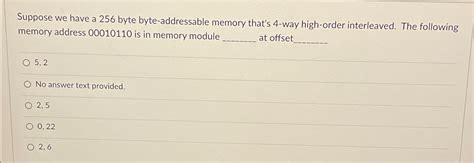 Suppose we have a 256 byte byte-addressable memory that's 4-way high-order interleaved. The following
memory address 00010110 is in memory module ________ at offset________
5, 2
No answer text provided.
2, 5
0, 22
2, 6